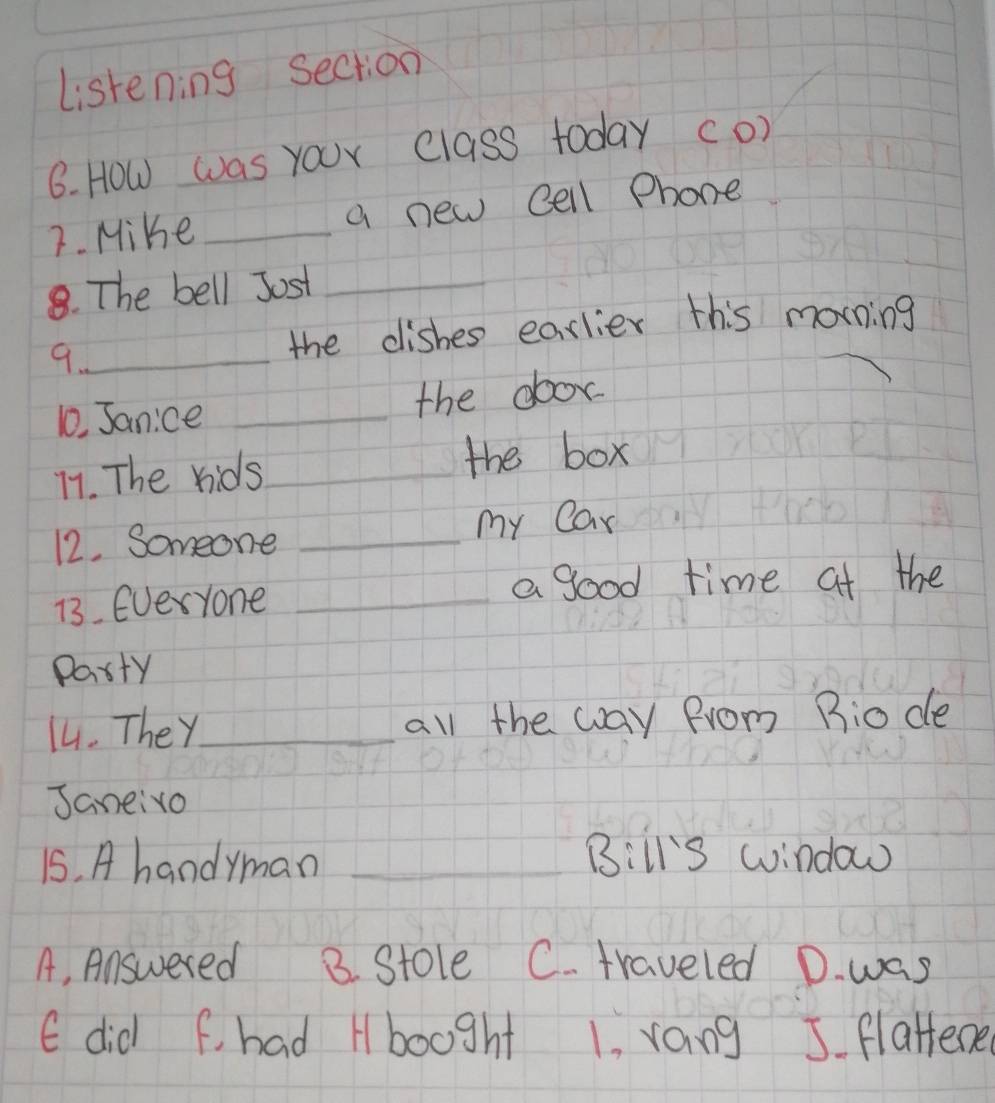 Listening Section
6. How was your class today (D)
7. Mike ______ a new cell Phone
8. The bell Just ________
9. __________ the dishes earlier this morning
10. Janice ________ the door
11. The kids __________ the box
12. Someone ________ my Car
13. Everyone __________ a good time at the
Party
14. They __________ all the way from Rio de
Janeiro
15. A handyman __________ Bill's window
A. Answered B. Stole C. traveled D. was
E did F. had H bought I. rang J. flattene